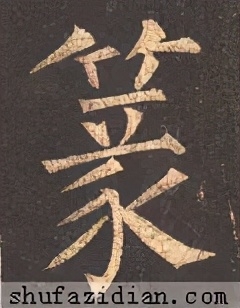 篆
shufazidian.com